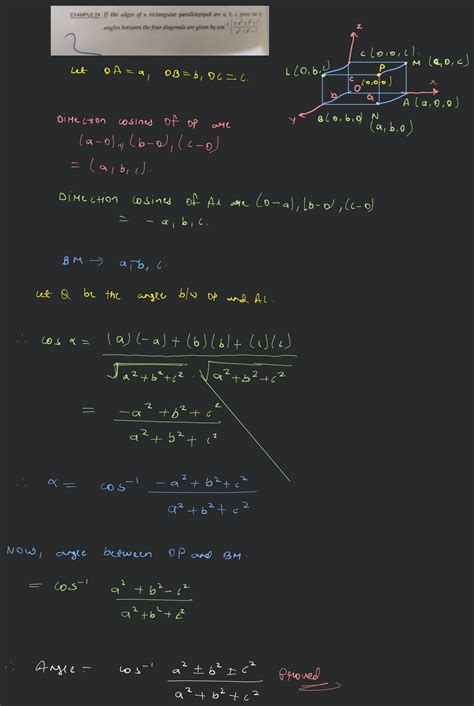 EXAMPLE 24 If the edges of a rectangular parallelepiped are a, b, c, prove that the
angles between the four diagonals are given by cos⁻¹ (
Let OA = a, OB = b, OC = c.
Z
C (0,0,c)
L (0,b,c)
P
M (a,0,c)
c
O (0,0,0)
X
b
a
A (a,0,0)
Y
B (0,b,0)
N
(a,b,0)
Direction cosines of OP are
(a-0), (b-0), (c-0)
= (a, b, c).
Direction cosines of AL are (0-a), (b-0), (c-0)
= -a, b, c.
BM → a, -b, c.
Let Q be the angle b/w OP and AL.
∴ cos α = (a)(-a) + (b)(b) + (c)(c)
√a²+b²+c² · √a²+b²+c²
= -a² + b² + c²
a² + b² + c²
∴ α = cos⁻¹ -a² + b² + c²
a² + b² + c²
NOW, angle between OP and BM.
= cos⁻¹ a² + b² - c²
a² + b² + c²
∴ Angle - cos⁻¹ a² ± b² ± c²
a² + b² + c²
Proved